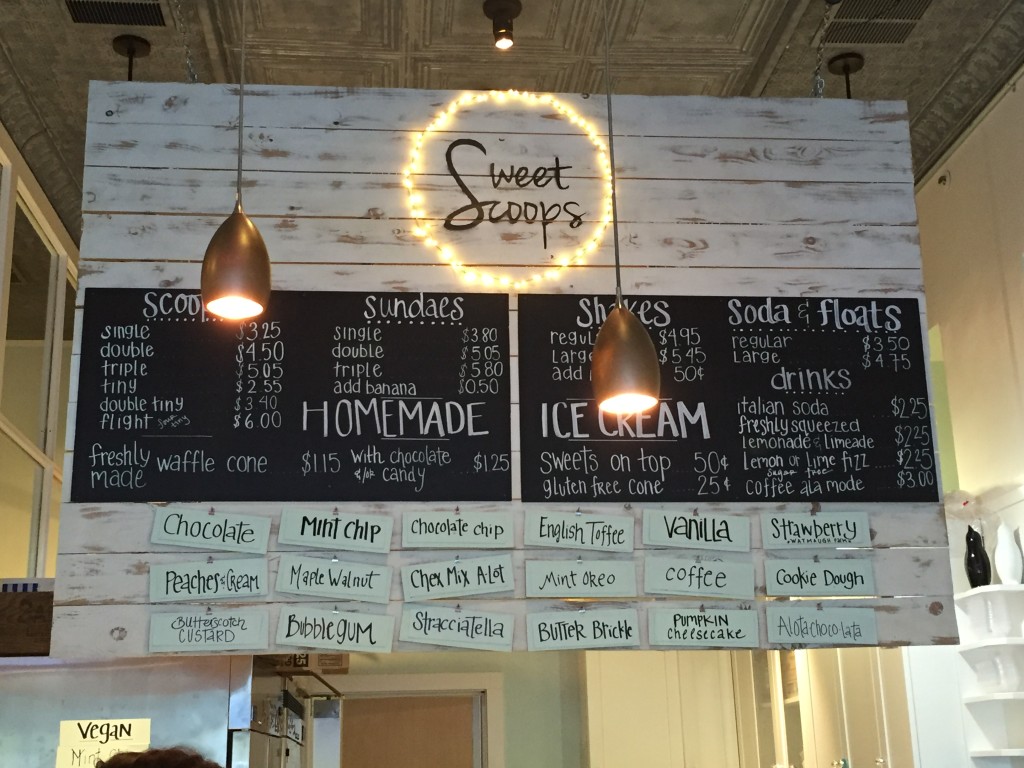 Sweet
Scoops
Scoops
single $3.25
double $4.50
triple $5.05
tiny $2.55
double tiny $3.40
flight $6.00
freshly
made waffle cone $1.15
Sundaes
single $3.80
double $5.05
triple $5.80
add banana $0.50
HOMEMADE
with chocolate
&/or candy $1.25
Shakes
regul $4.95
Large $5.45
add 50¢
ICE CREAM
Sweets on top 50¢
gluten free cone 25¢
Soda & floats
regular $3.50
Large $4.75
drinks
italian soda $2.25
freshly squeezed
lemonade & limeade $2.25
Lemon or lime fizz $2.25
sugar free
coffee ala mode $3.00
Chocolate Mint Chip Chocolate chip English Toffee Vanilla Strawberry
Peaches & Cream Maple Walnut Chex Mix Alot Mint Oreo Coffee Cookie Dough
Butterscotch
CUSTARD
Bubblegum Stracciatella Butter Brickle
Pumpkin
Cheesecake
Alotachoco-lata
Vegan
Mint